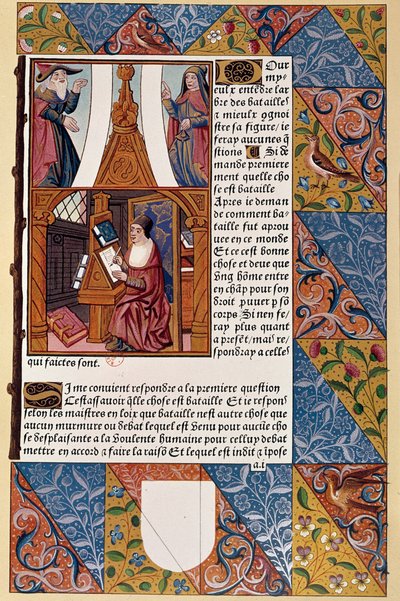 Our
mp-
eulx entẽdre lar
bre des bataillef
⁊ mieulx ꝯgnoi
stre sa figure/ ie
feray aucunes q̃
stions Si de
mande premiere
ment quelle cho
se est bataille
Apres ie deman
de comment ba-
taille fut aprou
uee en ce monde
Et ce cest bonne
chose et deue que
vng hõme entre
en chãp pour son
droit puuer p̱ sõ
corps Si nen fe
ray plus quant
a presẽt/ mais re
spondray a celles
qui faictes sont.
SI me conuient respondre a la premiere question
Cestassauoir q̃lle chose est bataille Et ie respon
selon les maistres en loix que bataille nest autre chose que
aucun murmure ou debat lequel est venu pour aucũe cho
se desplaisante a la voulente humaine pour celluy debat
mettre en accord ⁊ faire la raisõ Et lequel est indit ⁊ ipose
a.i